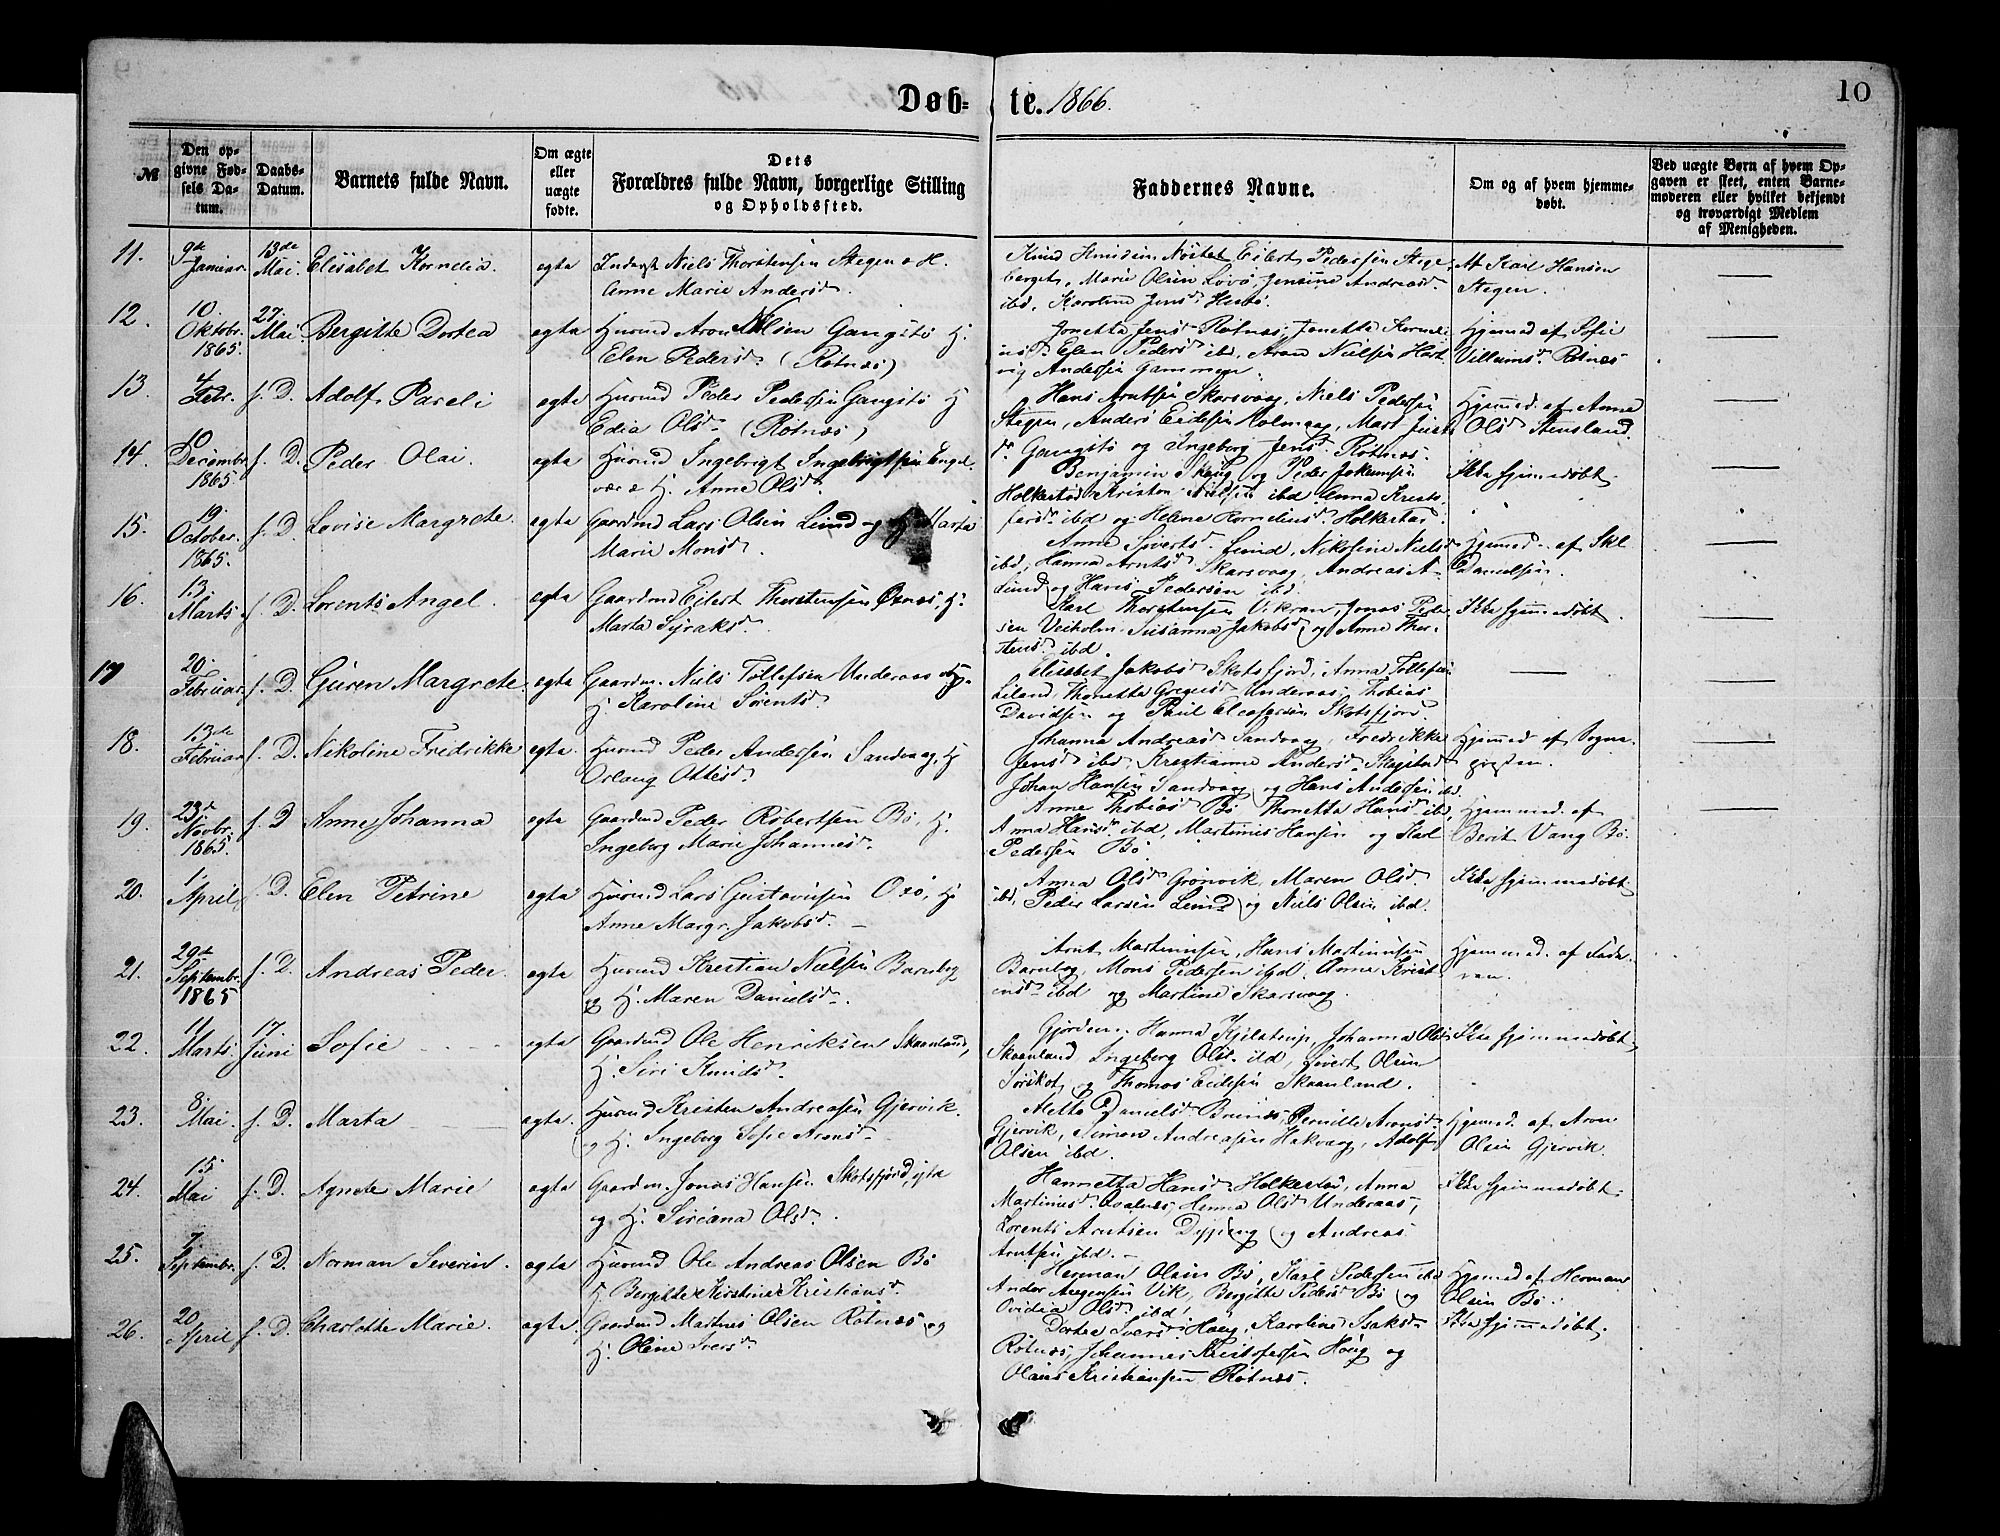 10
Døb- te. 1866.
№
Den op-
givne Fød-
sels Da-
tum.
Daabs-
Datum.
Barnets fulde Navn.
Om ægte
eller
uægte
fødte.
Dets
Forældres fulde Navn, borgerlige Stilling
og Opholdssted.
Faddernes Navne.
Om og af hvem hjemme-
døbt.
Ved uægte Børn af hvem Op-
gaven er skeet, enten Barne-
moderen eller hvilket bekjendt
og troværdigt Medlem
af Menigheden.
11.
9de
Januar.
13de
Mai.
Elisabet Kornelia.
egta
Inderst Niels Thorstensen Stegen o H.
Anne Marie Andersd.
Knud Knudsen Nøstet Eilert Pedersen Stege
berget, Marie Olsen Lovø, Jensine Andreasd.
ibd, Karoline Jensd.
Af Karl Hansen
Stegen.
12.
10.
Oktobr.
1865.
27.
Mai
Bergitte Dortea
egta
Huusmd Aron Nilsen Gangstø H.
Elen Pedersd. (Rotnæs)
Jonetta Jensd. Rotnæs, Jonetta Korne
Elen Pedersd. ibd, Aron Nielsen Hart
vig Andersen Gammen.
Hjemmed af Sofie
Villumsd. Rotnæs
13.
4
Febr.
s. D.
Adolf Pareli
egta
Huusmd Peder Pedersen Gangstø H
Edia Olsd. (Rotnæs)
Hans Arntsen Skarsvaag, Niels Pedersen
Stegen, Anders Eidesen Holmaag, Mart Just
d. Gangstø og Ingeborg Jensd. Rotnæs.
Hjemmed. af Anne
Olsd. Stensland.
14.
10
Decembr
1865.
s. D.
Peder Olai.
egta
Huusmd Ingebrigt Ingebrigtsen Engel
vær o H. Anne Olsd.
Benjamin Skaug og Peder Jokumsen
Holkestad Kristen Nielsen ibd Enna Kristo
fersd. ibd og Helene Korneliusd. Holkestad.
Ikke hjemmedøbt.
15.
19.
October.
1865.
s. D.
Lovise Margrete.
egta
Gaardmd Lars Olsen Lund og H Marta
Marie Monsd.
Anne Sivertsd. Lund, Nikoline Nielsd
ibd, Hanna Arntsd. Skarsvaag, Andreas A-
Lund og Hans Pedersen ibd.
Hjemmed. af Skl
Danielsen.
16.
13.
Marts
s. D.
Lorents Angel.
egta
Gaardmd Eilert Thorstensen Øxnes, H.
Marta Syraksd.
Karl Thorstensen Vikran, Jonas Peder
sen Veiholm Susanna Jakobsd. og Anne Thor-
stensd. ibd.
Ikke hjemmedøbt.
17
20.
Februar
s. D.
Guren Margrete.
egta
Gaardm. Niels Tollefsen Underaas og
H. Karoline Sørentsd.
Elisabet Jakobsd. Skotsfjord, Anna Tollefsen
Eiland, Thonetta Gregusd. Underaas, Thobias
Davidsen og Paul Eleasersen Skotsfjord.
18.
13de
Februar
s. D.
Nikoline Fridrikke
egta
Huusmd Peder Andersen Sandvaag, H
Orlaug Ottesd.
Johanna Andreasd. Sandvaag, Fredrikke
Jensd. ibd. Krestianne Andersd. Skagstad
Johan Hansen Sandvaag og Hans Andersen ibd.
Hjemmed. af Sogne-
presten.
19.
23d
Novbr.
1865.
s. D
Anne Johanna
egta
Gaardmd Peder Robertsen Bø, H.
Ingeborg Marie Johannesd.
Anne Thobiasd. Bø Thonetta Hansd. ibd,
Anna Hansd. ibd, Martinus Hansen og Karl
Pedersen Bø.
Hjemmed. af
Berit Vang Bø.
20.
1.
April
s. D.
Elen Petrine
egta
Huusmd Lars Gustavusen Oxø, H.
Anne Margr. Jakobsd.
Anna Olsd. Grønvik, Maren Olsd.
ibd, Peder Larsen Lund og Niels Olsen ibd.
Ikke hjemmedøbt
21.
29de
Septembr.
1865
s. D.
Andreas Peder.
egta
Huusmd Krestian Nielsen Barnbeg
og H. Maren Danielsd.
Arnt Martinusen, Hans Martinusen
Barnbeg, Mons Pedersen ibd, Anne Kristi
ensd. ibd og Martine Skarsvaag.
Hjemmed. af Fade-
ren.
22.
11
Marts.
17.
Juni
Sofie
egta
Gaardmd Ole Henriksen Skaanland,
H. Siri Knudsd.
Gjordem. Hanna Kjelstrup, Johanna Olsd.
Skaanland, Ingeborg Olsd. ibd, Sivert Olsen
Sørskot og Thomas Eidesen Skaanland.
Ikke hjemmedøbt
23.
8.
Mai.
s. D.
Marta
egta
Huusmd Kristen Andreasen Gjervik.
og H. Ingeborg Sofie Aronsd.
Aletta Danielsd. Brunes, Pernille Aronsd.
Gjervik, Simon Andreasen Hakvaag, Adolf
Olsen ibd.
Hjemmed. af Aron
Olsen Gjervik.
24.
15
Mai
s. D.
Agnete Marie
egta
Gaardm. Jonas Hansen Skotsfjord ytre
og H. Siriana Olsd.
Hannetta Hansd. Holkestad, Anna
Martinusd. Oxelnes, Henna Olsd. Underaas,
Lorents Arntsen Dypeng og Andreas
Arntsen ibd.
Ikke hjemmedøbt.
25.
7.
Septembr.
s. D.
Norman Severin.
egta
Huusmd Ole Andreas Olsen Bø
H. Bergitte Kirstine Kristiansd.
Herman Olsen Bø, Karl Pedersen ibd
Ander Aagensen Vik, Bergitte Pedersd. Bø og
Ovidia Olsd. ibd.
Hjemmed af Herman
Olsen Bø.
26.
20
April
s. D.
Charlotte Marie.
egta
Gaardmd Martnes Olsen Rotnæs og
H. Oline Iversd.
Dortea Iversd. Haug, Karoline Isaksd.
Rotnæs, Johannes Kristofersen Houg og
Olaus Kristiansen Rotnæs.
Ikke hjemmedøbt.